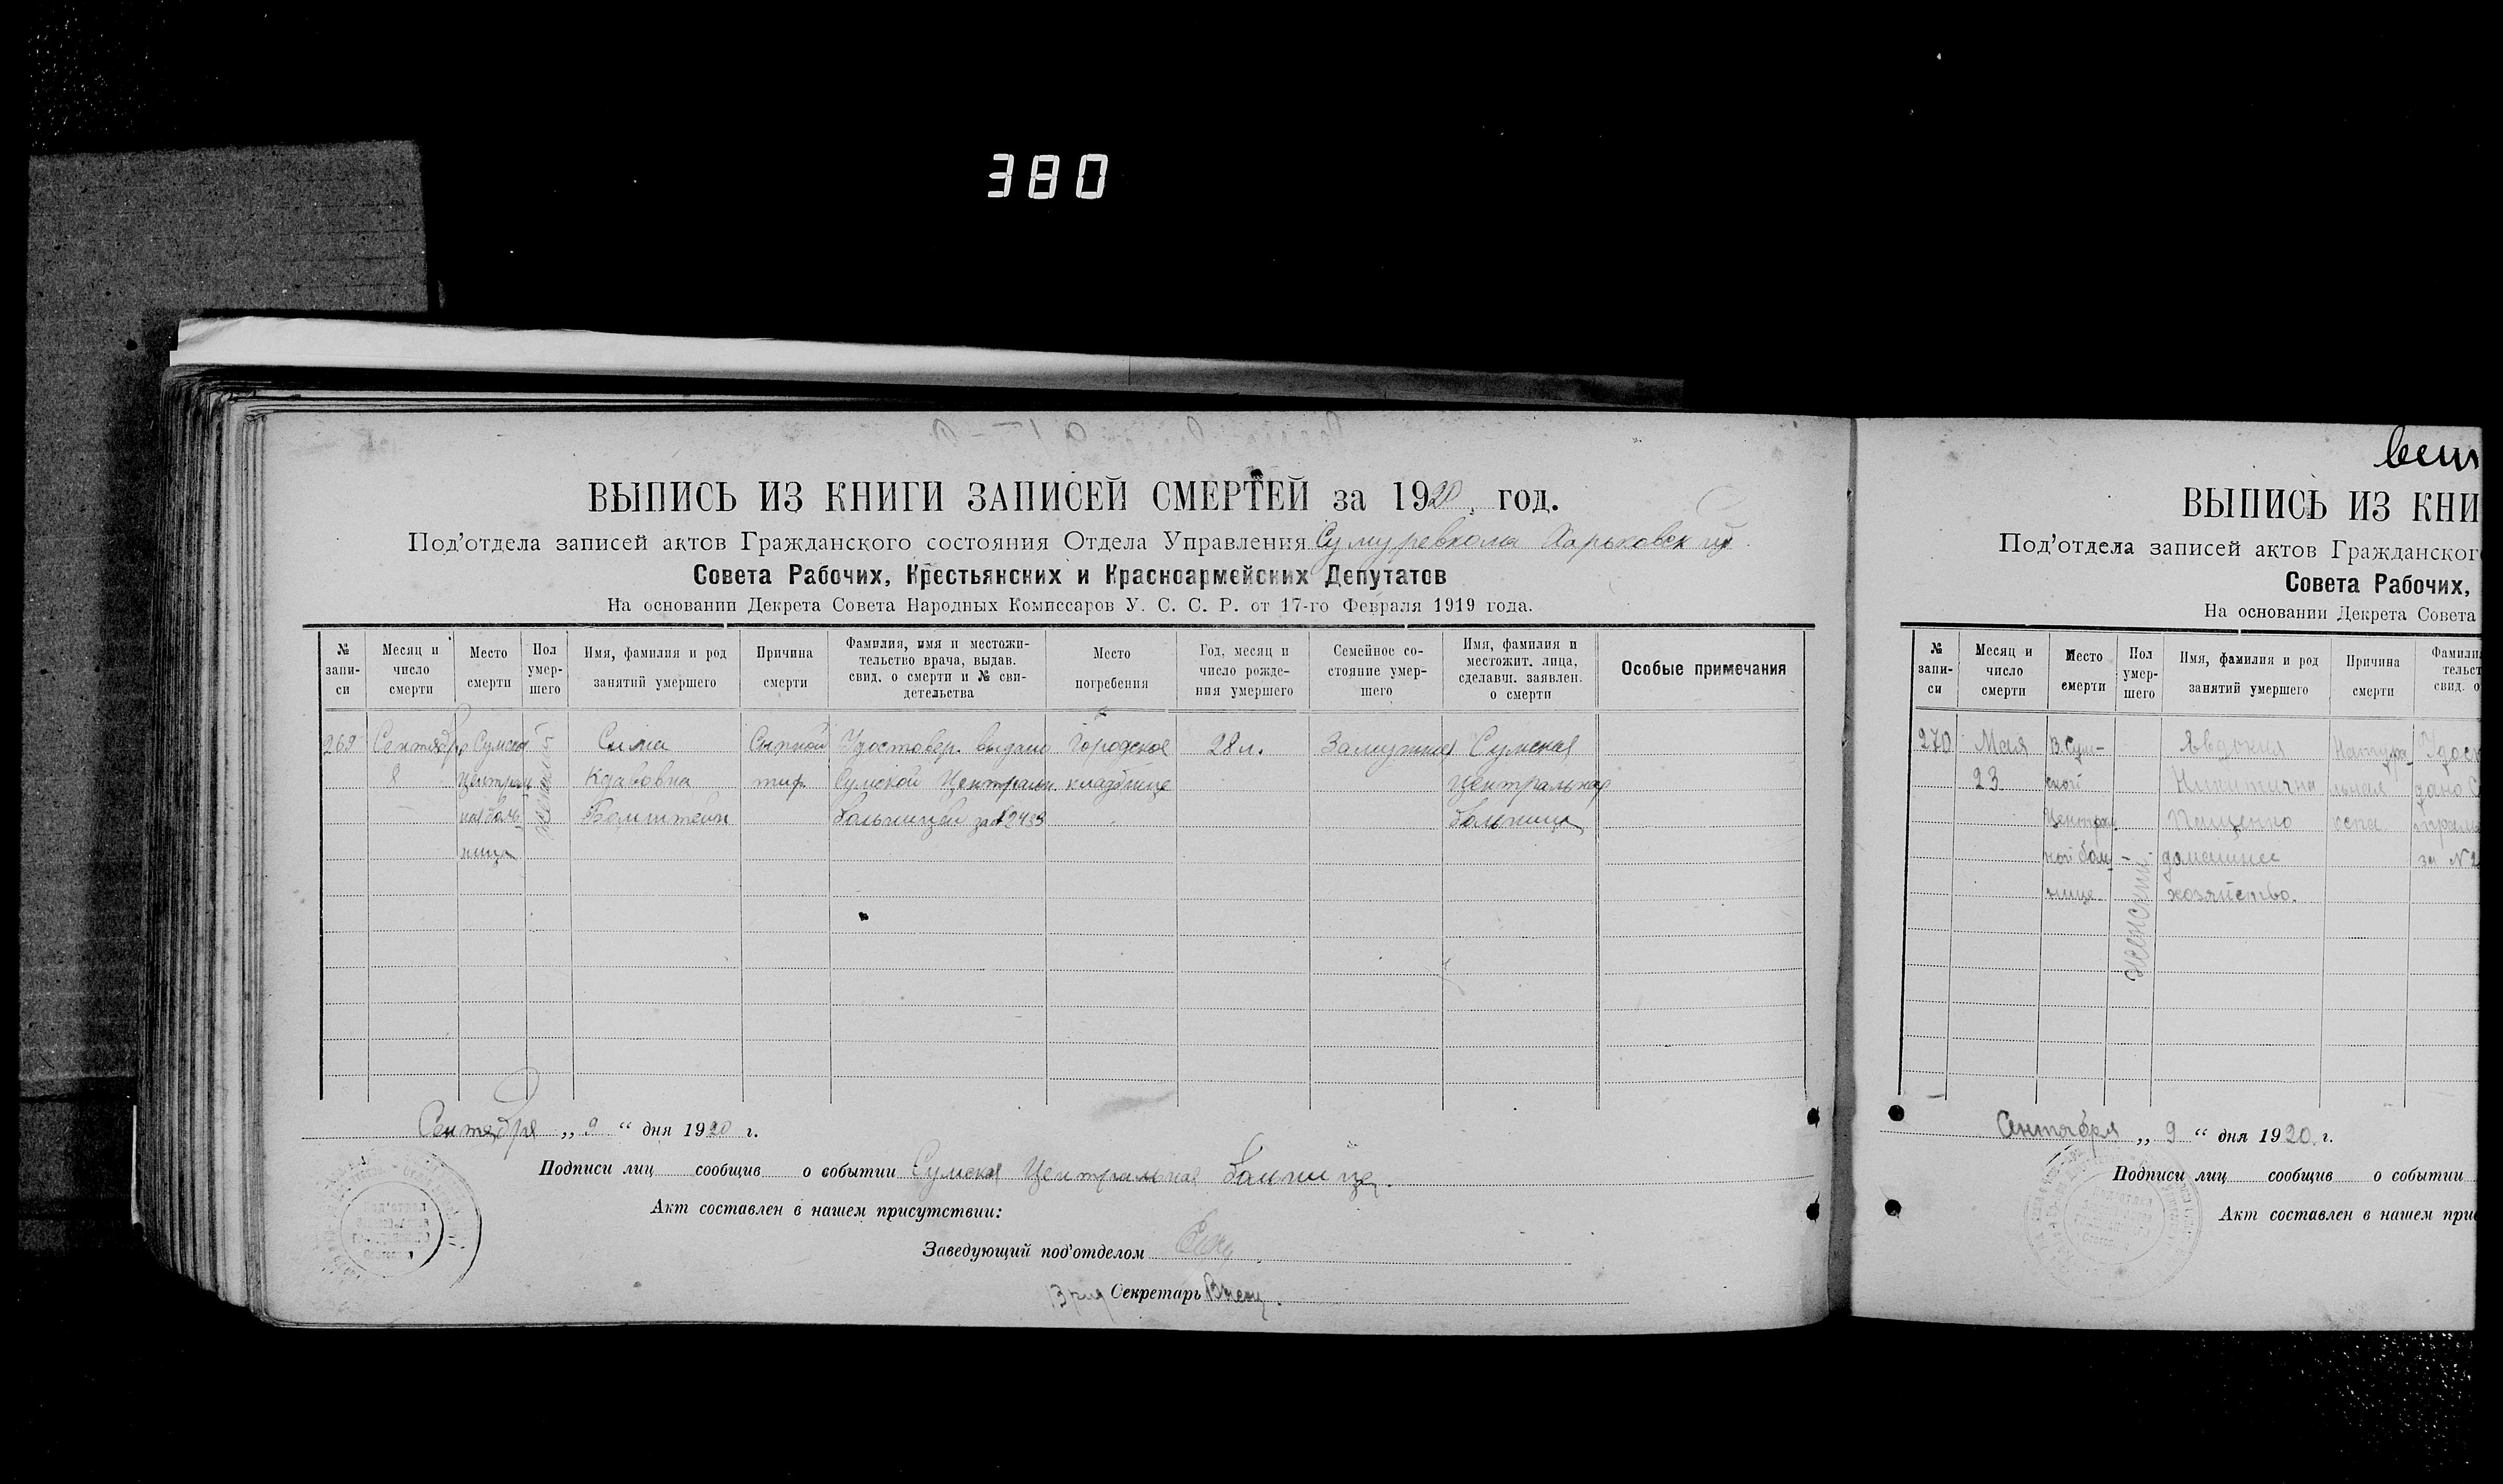 380
ВЫПИСЬ ИЗ КНИГИ ЗАПИСЕЙ СМЕРТЕЙ за 1920 год.
Под'отдела записей актов Гражданского состояния Отдела Управления Сумуревкома Харьковск губ
Совета Рабочих, Крестьянских и Красноармейских Депутатов
На основании Декрета Совета Народных Комиссаров У. С. С. Р. от 17-го Февраля 1919 года.
№ запи-си
Месяц и число смерти
Место смерти
Пол умер-шего
Имя, фамилия и род занятий умершего
Причина смерти
Фамилия, имя и местожи-тельство врача, выдав. свид. о смерти и № сви-детельства
Место погребения
Год, месяц и число рожде-ния умершего
Семейное со-стояние умер-шего
Имя, фамилия и местожит. лица, сделавш. заявлен. о смерти
Особые примечания
269 Сентября Сумская Сима Сыпной Удостовер. выдано Городское 28 л. Замужняя Сумская
8 Централь тиф Сумской Централь. кладбище Центральная
ная боль больницей за № 2433 больница
ница
Сентября „ 9 “ дня 1920 г.
Подписи лиц сообщив о событии Сумская Центральная больница.
Акт составлен в нашем присутствии:
Заведующий под'отделом
Врид Секретарь
ВЫПИСЬ ИЗ КНИ
Под'отдела записей актов Гражданского
Совета Рабочих,
На основании Декрета Совета
№ запи-си
Месяц и число смерти
Место смерти
Пол умер-шего
Имя, фамилия и род занятий умершего
Причина смерти
Фамили тельст свид. о
270 Мая В Сум- Евдокия Натура
23 ской Никитична льная дано С
Централ Пащенко оспа трал
ной боль домашнее за №2
нице хозяйство.
женский
Сентября „ 9 “ дня 1920 г.
Подписи лиц сообщив о событии
Акт составлен в нашем при